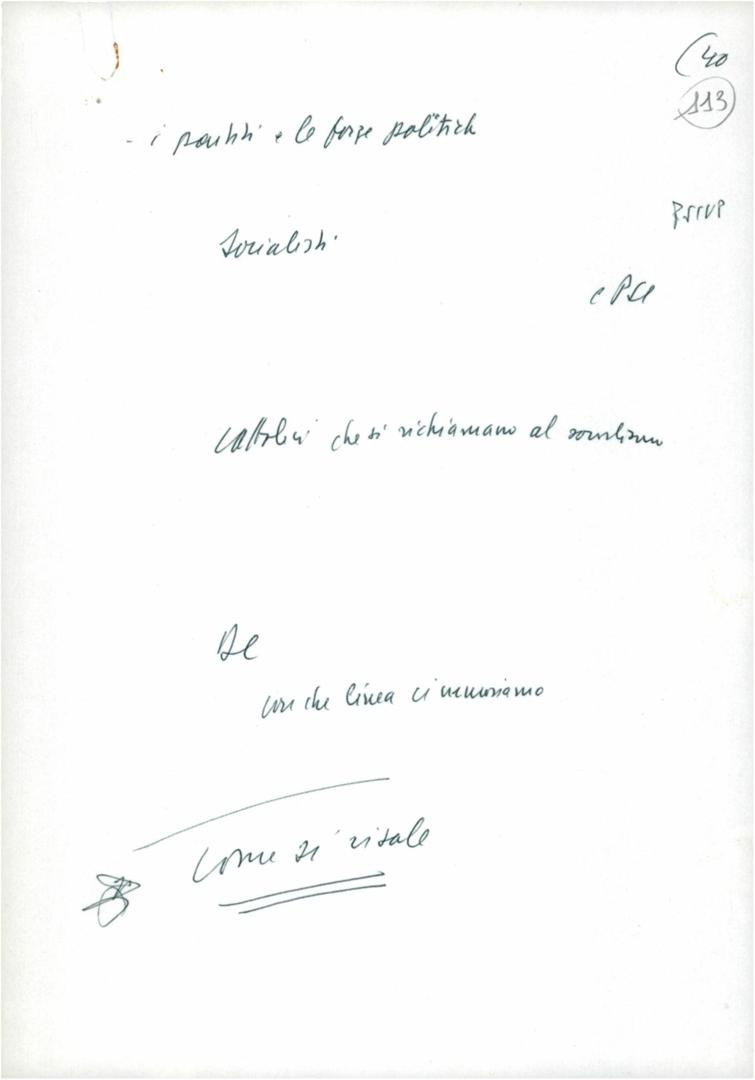 (40
113
- i partiti e le forze politich
PSIUP
Socialisti
e PSI
cattolici che si richiamano al socialismo
DC
con che linea ci muoviamo
come si risale